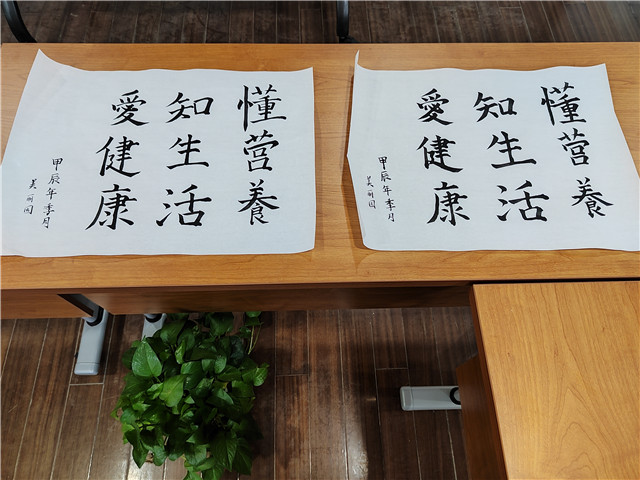 懂营養
知生活
愛健康
甲辰年季月
懂营養
知生活
愛健康
甲辰年季月